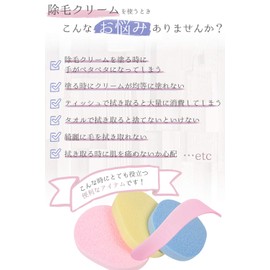 除毛クリームを使うとき
こんなお悩みありませんか？
除毛クリームを塗る時に
手がベタベタになってしまう
塗る時にクリームが均等に塗れない
ティッシュで拭き取ると大量に消費してしまう
タオルで拭き取ると捨てないといけない
綺麗に毛を拭き取れない
拭き取る時に肌を痛めないか心配 …etc
こんな時にとても役立つ
便利なアイテムです！